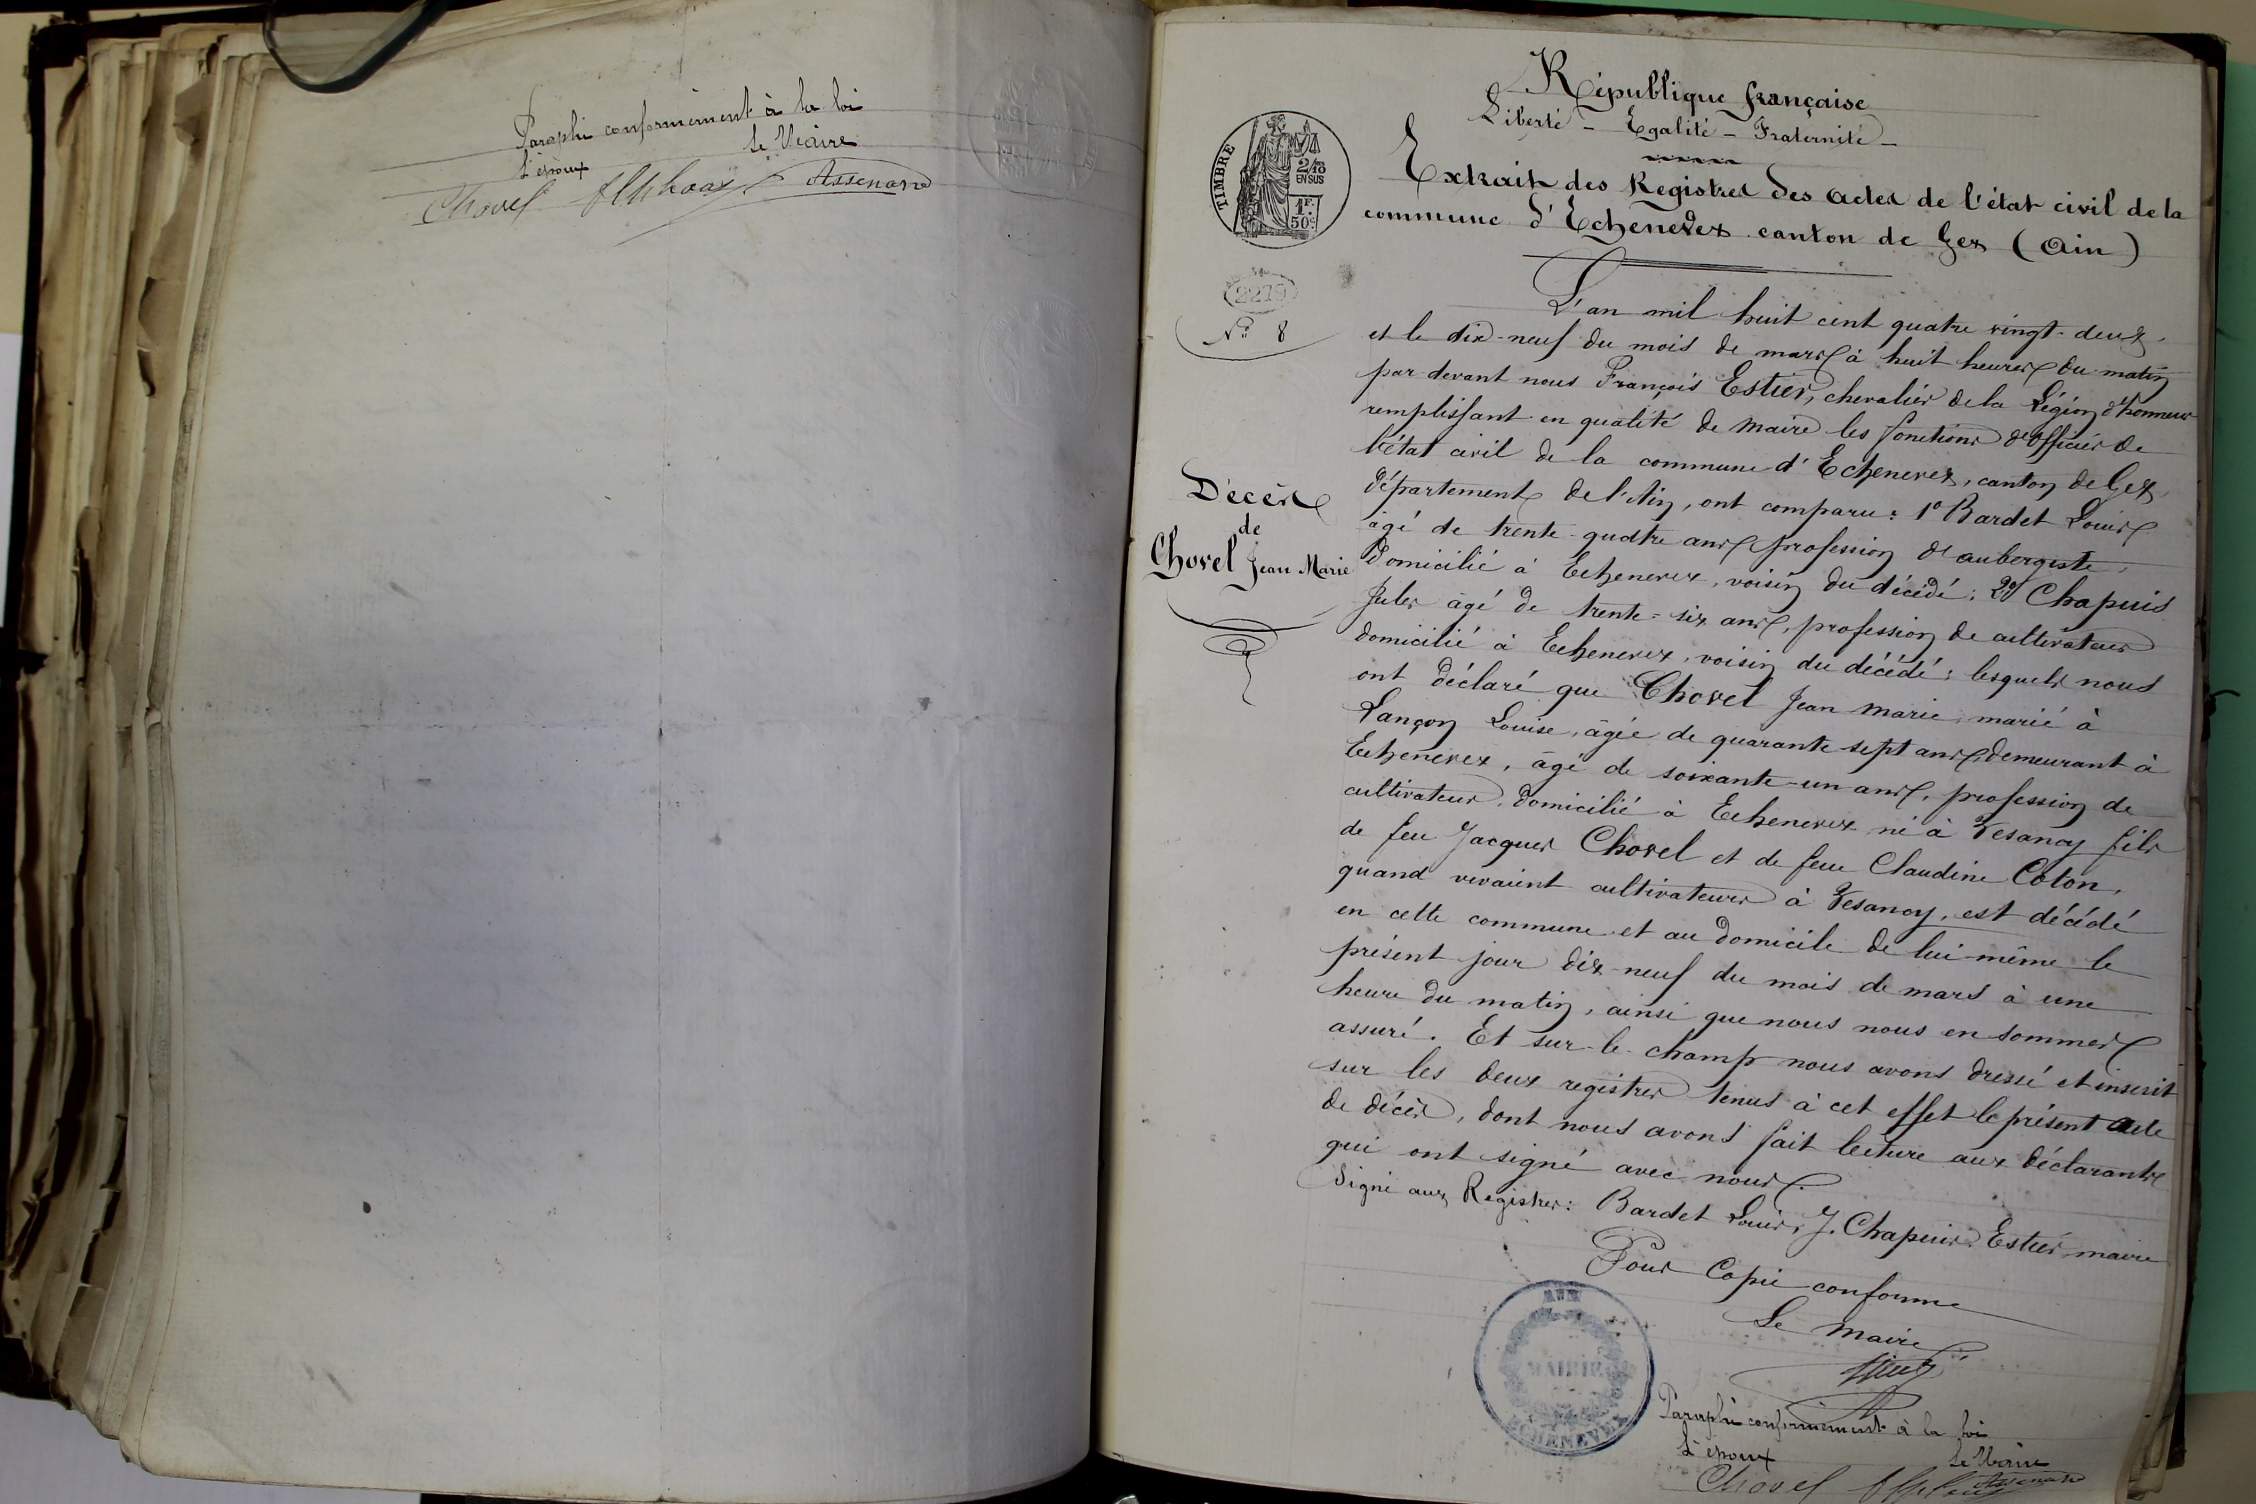 Paraphé conformément à la loi
L'époux Le Maire
Chovel Alphonse Assenard
République française
Liberté - Egalité - Fraternité -
TIMBRE
2/10
EN SUS
1F.
50c.
Extrait des Registres des actes de l'état civil de la
commune d'Echenevex canton de Gex (Ain)
2279
No 8
Décès
de
Chovel Jean Marie
L'an mil huit cent quatre vingt-deux,
et le dix-neuf du mois de mars à huit heures du matin
par devant nous François Estier, chevalier de la Légion d'honneur
remplissant en qualité de maire les fonctions d'officier de
l'état civil de la commune d'Echenevex, canton de Gex,
département de l'Ain, ont comparu: 1o Bardet Louis
âgé de trente-quatre ans profession d'aubergiste,
domicilié à Echenevex, voisin du décédé; 2o Chapuis
Jules âgé de trente-six ans, profession de cultivateur
domicilié à Echenevex, voisin du décédé; lesquels nous
ont déclaré que Chovel Jean Marie, marié à
Lançon Louise, âgée de quarante sept ans, demeurant à
Echenevex, âgé de soixante-un ans, profession de
cultivateur, domicilié à Echenevex né à Vesancy fils
de feu Jacques Chovel et de feue Claudine Coton,
quand vivaient cultivateurs à Vesancy, est décédé
en cette commune et au domicile de lui-même le
présent jour dix-neuf du mois de mars à une
heure du matin, ainsi que nous nous en sommes
assuré. Et sur-le-champ nous avons dressé et inscrit
sur les deux registres tenus à cet effet le présent acte
de décès, dont nous avons fait lecture aux déclarants
qui ont signé avec nous.
Signé aux Registres: Bardet Louis, J. Chapuis, Estier maire
Pour Copie conforme
Le Maire
AIN
MAIRIE
ECHENEVEX
Paraphé conformément à la loi
L'époux Le Maire
Chovel Alphonse Assenard